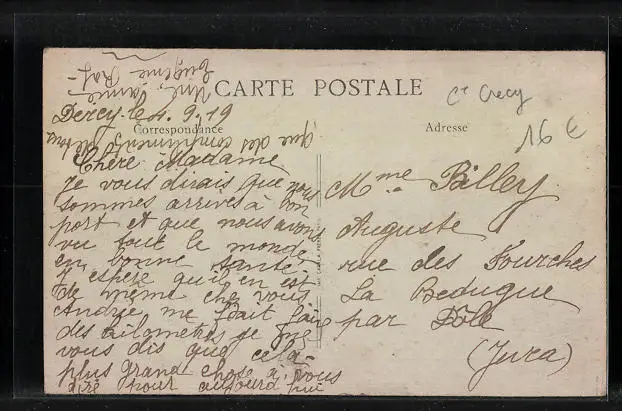 CARTE POSTALE
Correspondance
Adresse
Ct Crecy
16 €
Dercy le 4. 9. 19
Chère Madame
Je vous dirais que nous
sommes arrivés à bon
port et que nous avons
vu tout le monde
en bonne santé.
J espère qu'il en est
de même chez vous
André me fait faire
des kilometres je ne
vous dis que cela
plus grand chose à vous
dire pour aujourd hui
que des compliments de tous
Une amie
Eugénie
Mme Billey
Auguste
rue des Fourches
La Bedugue
par Dôle
(Jura)